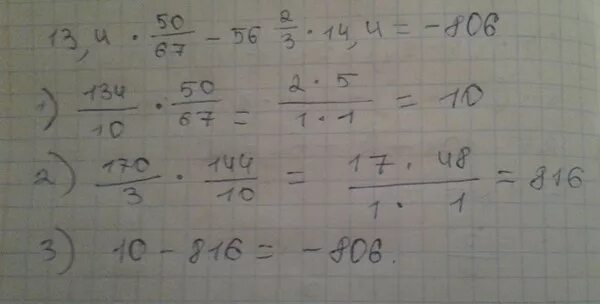 13,4 · 50/67 − 56 2/3 · 14,4 = −806
1) 134/10 · 50/67 = 2 · 5/1 · 1 = 10
2) 170/3 · 144/10 = 17 · 48/1 · 1 = 816
3) 10 − 816 = −806.